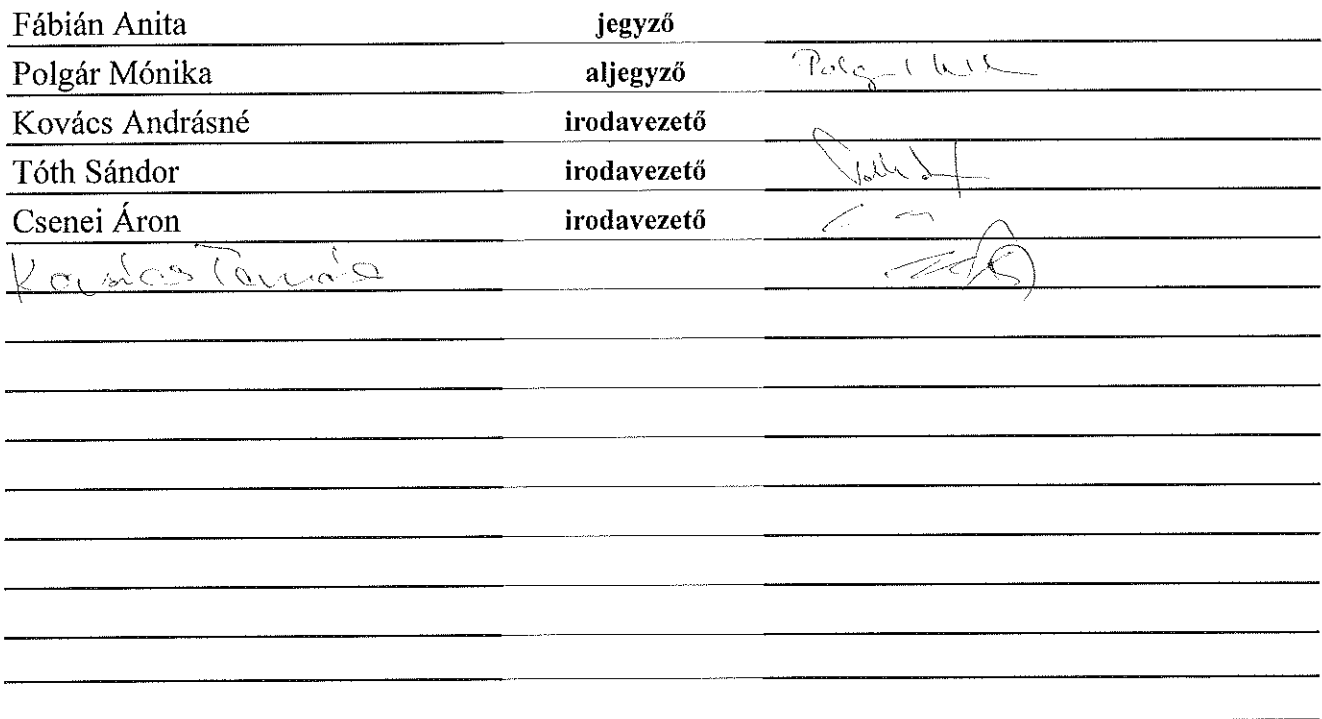 Fábián Anita jegyző
Polgár Mónika aljegyző
Kovács Andrásné irodavezető
Tóth Sándor irodavezető
Csenei Áron irodavezető
Kovács Tamás